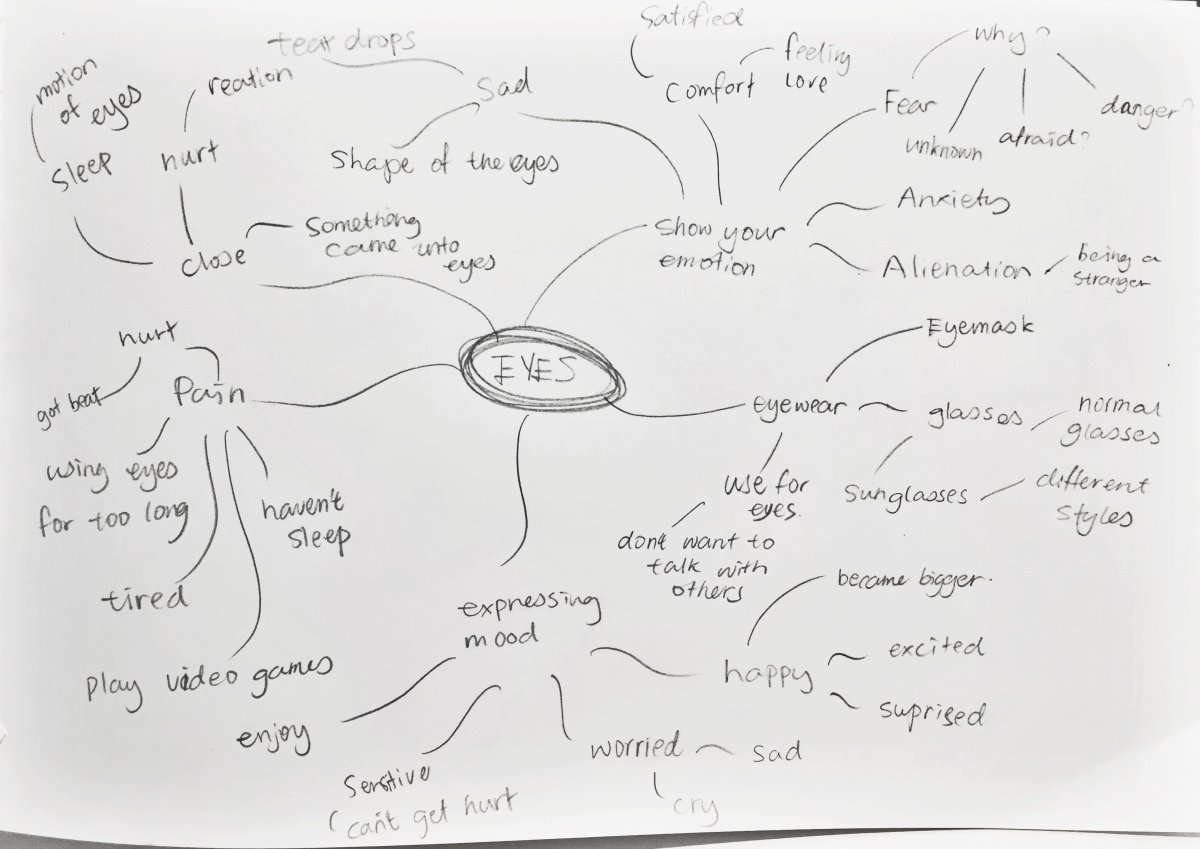 Satisfied
tear drops
why?
feeling
love
motion
of eyes
reation
Sad
comfort
Fear
danger?
unknown
afraid?
Sleep
hurt
Shape of the eyes
Anxiety
something
came unto
eyes
close
show your
emotion
Alienation
being a
stranger
hurt
Eyemask
EYES
got beat
Pain
eyewear
glasses
normal
glasses
using eyes
for too long
haven't
sleep
use for
eyes.
sunglasses
different
styles
don't want to
talk with
others
tired
expressing
mood
became bigger.
play video games
happy
excited
suprised
enjoy
worried
sad
Sensitive
(can't get hurt
cry